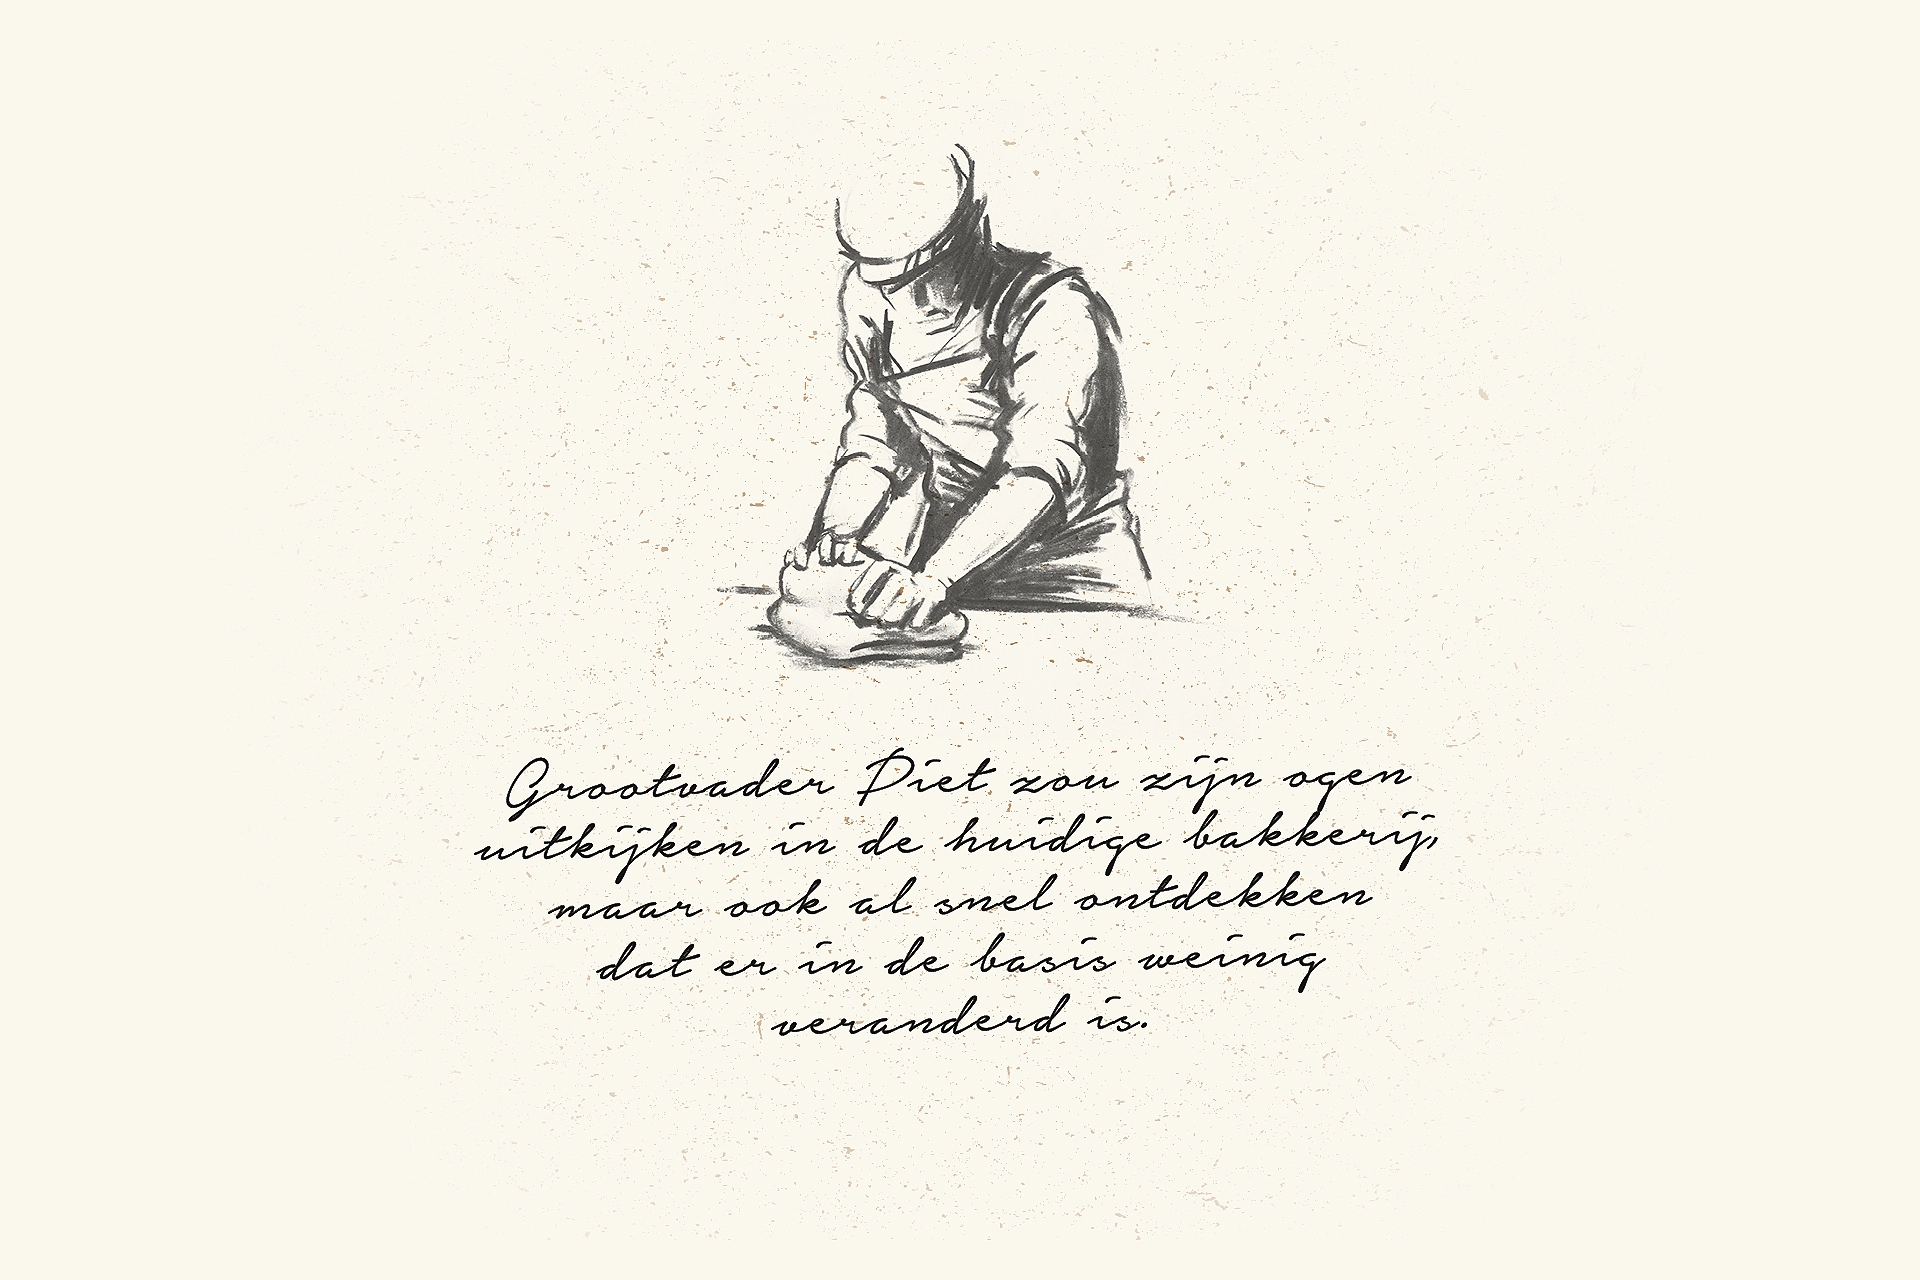 Grootvader Piet zou zijn ogen
uitkijken in de huidige bakkerij,
maar ook al snel ontdekken
dat er in de basis weinig
veranderd is.